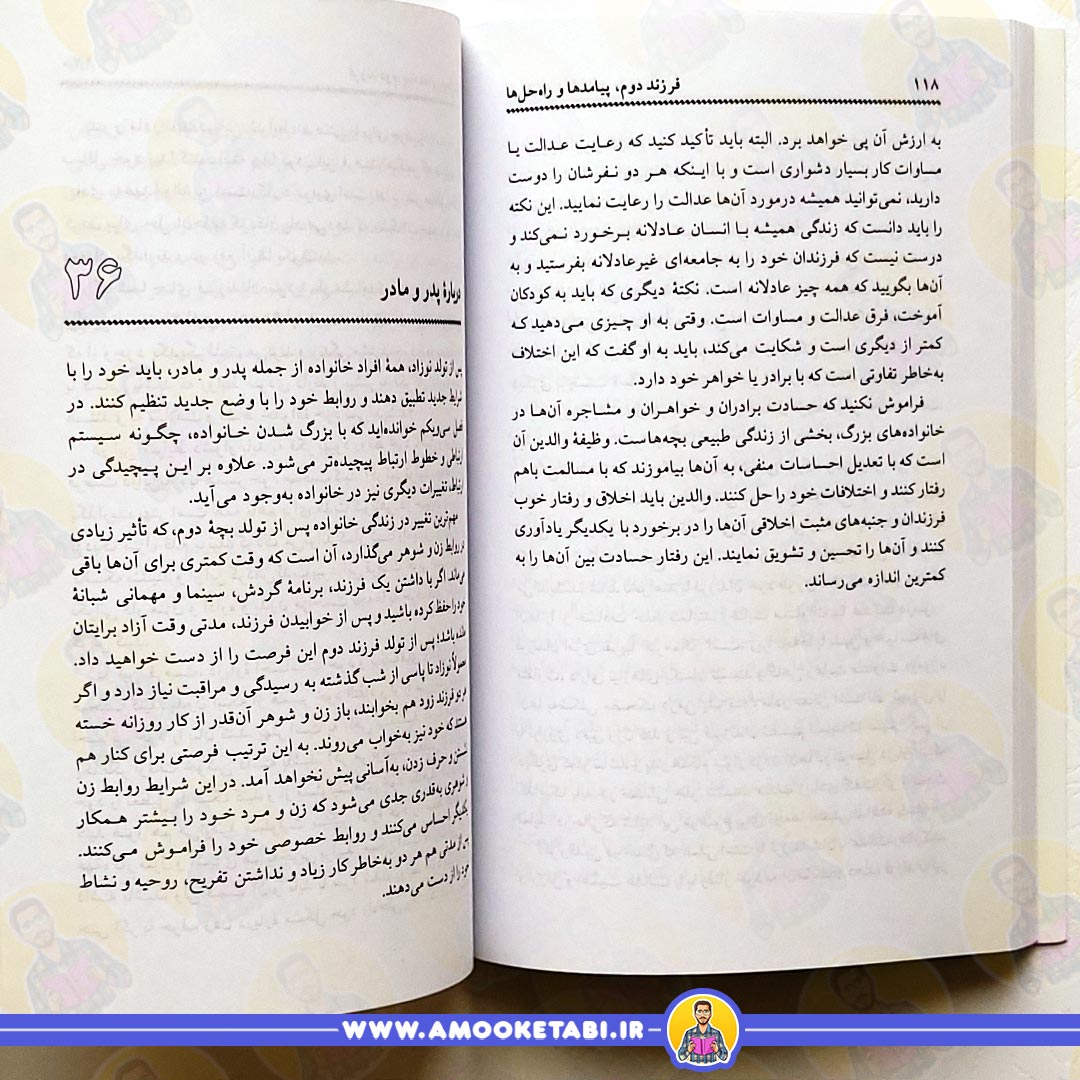 ۱۱۸
فرزند دوم، پیامدها و راه‌حل‌ها
به ارزش آن پی خواهد برد. البته باید تأکید کنید که رعایت عدالت یا
مساوات کار بسیار دشواری است و با اینکه هر دو نفرشان را دوست
دارید، نمی‌توانید همیشه درمورد آن‌ها عدالت را رعایت نمایید. این نکته
را باید دانست که زندگی همیشه با انسان عادلانه برخورد نمی‌کند و
درست نیست که فرزندان خود را به جامعه‌ای غیرعادلانه بفرستید و به
آن‌ها بگویید که همه چیز عادلانه است. نکتهٔ دیگری که باید به کودکان
آموخت، فرق عدالت و مساوات است. وقتی به او چیزی می‌دهید که
کمتر از دیگری است و شکایت می‌کند، باید به او گفت که این اختلاف
به‌خاطر تفاوتی است که با برادر یا خواهر خود دارد.
فراموش نکنید که حسادت برادران و خواهران و مشاجره آن‌ها در
خانواده‌های بزرگ، بخشی از زندگی طبیعی بچه‌هاست. وظیفهٔ والدین آن
است که با تعدیل احساسات منفی، به آن‌ها بیاموزند که با مسالمت باهم
رفتار کنند و اختلافات خود را حل کنند. والدین باید اخلاق و رفتار خوب
فرزندان و جنبه‌های مثبت اخلاقی آن‌ها را در برخورد با یکدیگر یادآوری
کنند و آن‌ها را تحسین و تشویق نمایند. این رفتار حسادت بین آن‌ها را به
کمترین اندازه می‌رساند.
۳۶
دربارهٔ پدر و مادر
پس از تولد نوزاد، همهٔ افراد خانواده از جمله پدر و مادر، باید خود را با
شرایط جدید تطبیق دهند و روابط خود را با وضع جدید تنظیم کنند. در
فصل سی‌ویکم خوانده‌اید که با بزرگ شدن خانواده، چگونه سیستم
ارتباطی و خطوط ارتباط پیچیده‌تر می‌شود. علاوه بر این پیچیدگی در
ارتباط، تغییرات دیگری نیز در خانواده به‌وجود می‌آید.
مهم‌ترین تغییر در زندگی خانواده پس از تولد بچهٔ دوم، که تأثیر زیادی
در روابط زن و شوهر می‌گذارد، آن است که وقت کمتری برای آن‌ها باقی
می‌ماند. اگر با داشتن یک فرزند، برنامهٔ گردش، سینما و مهمانی شبانهٔ
خود را حفظ کرده باشید و پس از خوابیدن فرزند، مدتی وقت آزاد برایتان
مانده باشد؛ پس از تولد فرزند دوم این فرصت را از دست خواهید داد.
معمولاً نوزاد تا پاسی از شب گذشته به رسیدگی و مراقبت نیاز دارد و اگر
هر دو فرزند زود هم بخوابند، باز زن و شوهر آن‌قدر از کار روزانه خسته
هستند که خود نیز به‌خواب می‌روند. به این ترتیب فرصتی برای کنار هم
نشستن و حرف زدن، به‌آسانی پیش نخواهد آمد. در این شرایط روابط زن
و شوهری به‌قدری جدی می‌شود که زن و مرد خود را بیشتر همکار
یکدیگر احساس می‌کنند و روابط خصوصی خود را فراموش می‌کنند.
از مدتی هم هر دو به‌خاطر کار زیاد و نداشتن تفریح، روحیه و نشاط
خود را از دست می‌دهند.
WWW.AMOOKETABI.IR